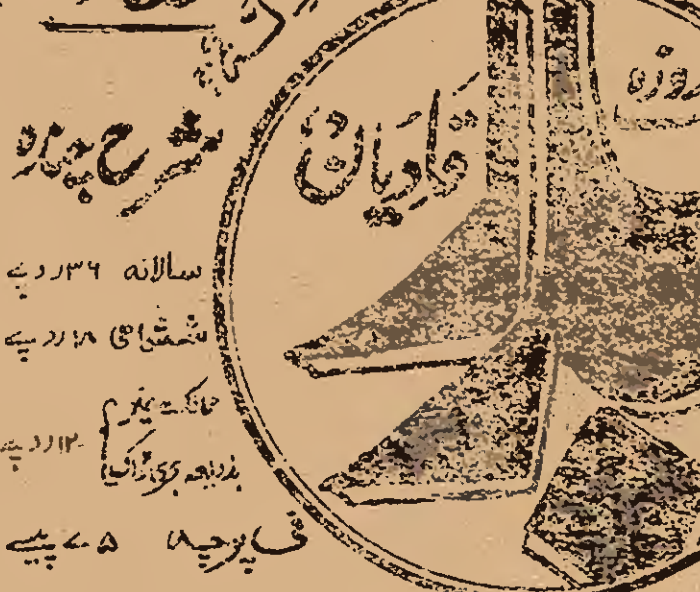 روزہ
قادیان
شرح چندہ
سالانہ ۳۶ روپے
ششماہی ۱۸ روپے
ممالک غیر
بذریعہ بحری ڈاک
۱۲ روپے
فی پرچہ ۷۵ پیسے